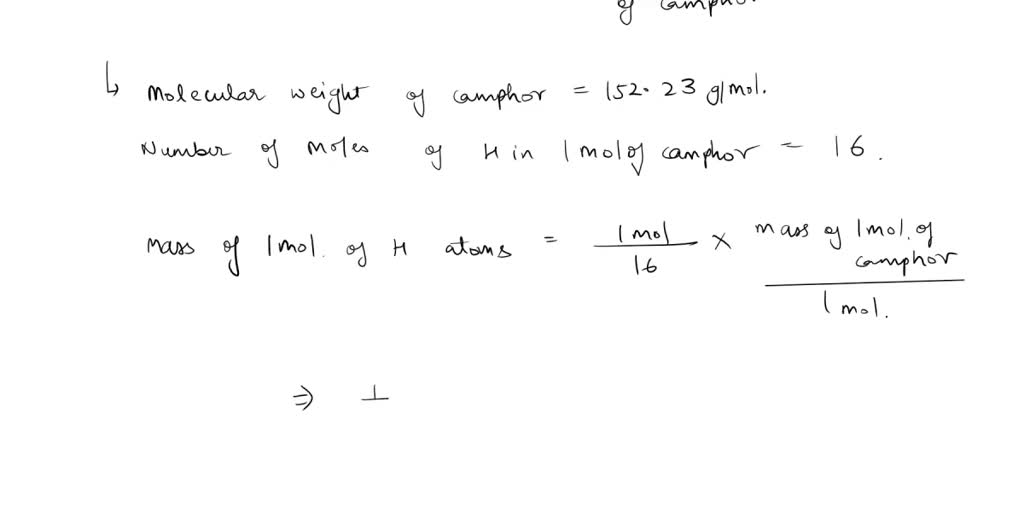 of camphor
↳ Molecular weight of camphor = 152.23 g/mol.
Number of moles of H in 1 mol of camphor = 16.
mass of 1 mol. of H atoms = 1 mol / 16 × mass of 1 mol. of camphor / 1 mol.
⇒ 1